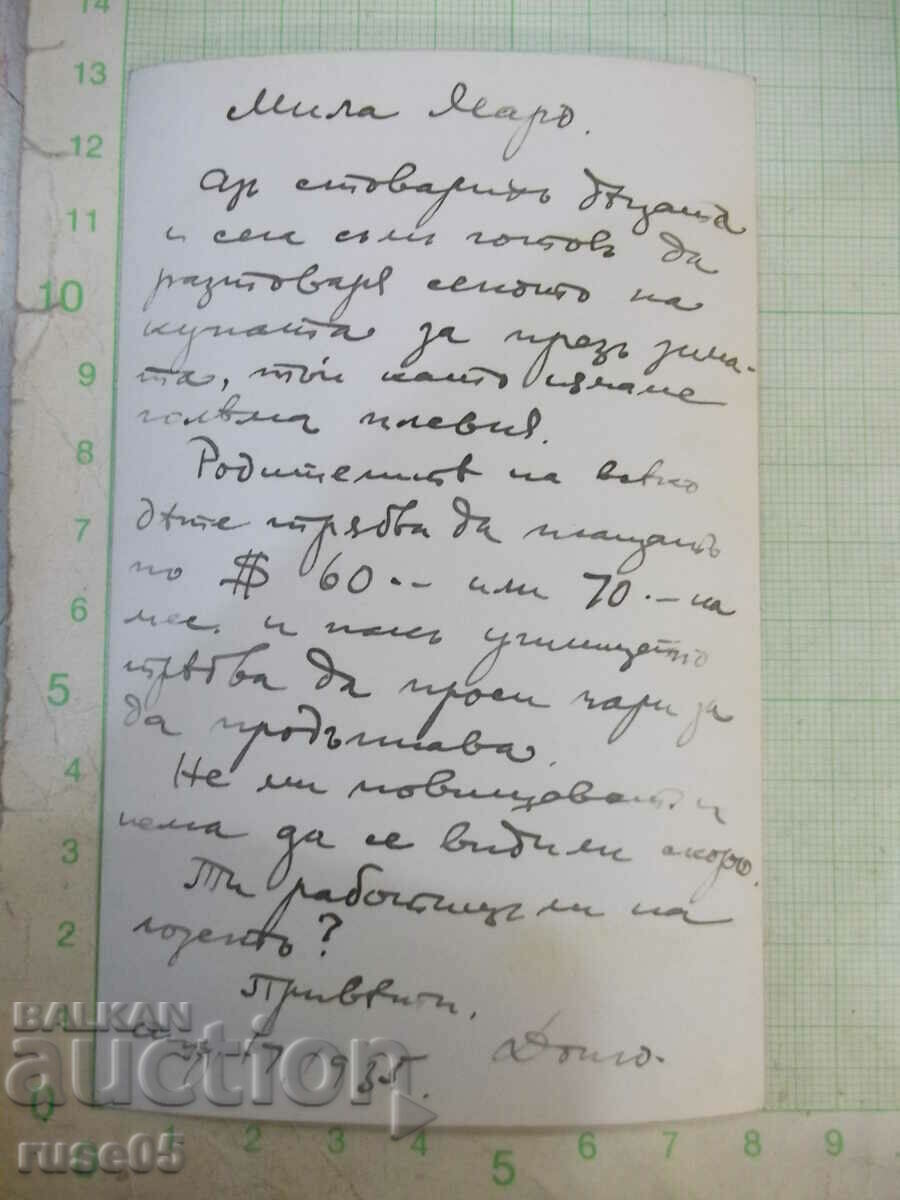 Мила Маро.
Аз стоварихъ дѣцата
и сен съмъ готовъ да
разтоваря сеното на
купата за презъ зима-
та, тъй като нямаме
голѣма плевня.
Родителитѣ на всѣко
дѣте трябва да плащатъ
по $ 60.- или 70.- на
мес. и пакъ училището
трѣбва да проси пари за
да продължава.
Не ми
нема да се видими скоро.
Ти работишъ ли на
лозето?
Привѣти.
Дошо.
17 1935.
14
13
12
11
10
9
8
7
6
5
4
3
2
0
1 2 3 4 5 6 7 8 9
BALKAN
auction
ruse05